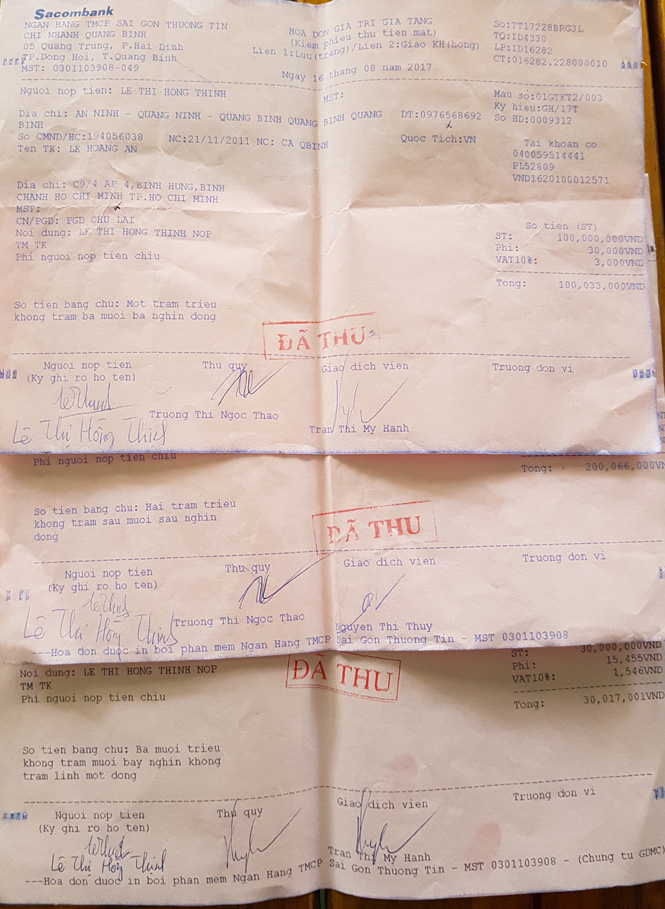 Sacombank
NGAN HANG TMCP SAI GON THUONG TIN
CHI NHANH QUANG BINH
05 Quang Trung, P.Hai Dinh
TP.Dong Hoi, T.Quang Binh
MST: 0301103908-049
HOA DON GIA TRI GIA TANG
(Kiem phieu thu tien mat)
Lien 1:Luu(trang)/Lien 2:Giao KH(hong)
Ngay 16 thang 08 nam 2017
SO:TT17228BRGJL
TQ:ID4330
LP:ID16282
CT:016282.228000010
Nguoi nop tien: LE THI HONG THINH
MST:
Mau so:01GTKT2/003
Ky hieu:GH/17T
So HD:0009312
Dia chi: AN NINH - QUANG NINH - QUANG BINH QUANG BINH QUANG
BINH
DT:0976568692
So CMND/HC:194056038 NC:21/11/2011 NC: CA QBINH
Quoc Tich:VN
Ten TK: LE HOANG AN
Tai khoan co
040059514441
PL52809
VND1620100012571
Dia chi: C9/4 AP 4,BINH HUNG,BINH
CHANH HO CHI MINH TP.HO CHI MINH
MST:
CN/PGD: PGD CHU LAI
Noi dung: LE THI HONG THINH NOP
TM TK
Phi nguoi nop tien chiu
So tien (ST)
ST: 100,000,000VND
Phi: 30,000VND
VAT10%: 3,000VND
Tong: 100,033,000VND
So tien bang chu: Mot tram trieu
khong tram ba muoi ba nghin dong
ĐÃ THU
Nguoi nop tien Thu quy Giao dich vien Truong don vi
(Ky ghi ro ho ten)
Truong Thi Ngoc Thao Tran Thi My Hanh
Lê Thị Hồng Thinh
Phi nguoi nop tien chiu
Tong: 200,066,000VND
So tien bang chu: Hai tram trieu
khong tram sau muoi sau nghin
dong
ĐÃ THU
Nguoi nop tien Thu quy Giao dich vien Truong don vi
(Ky ghi ro ho ten)
Lê Thị Hồng Thinh
Truong Thi Ngoc Thao Nguyen Thi Thuy
---Hoa don duoc in boi phan mem Ngan Hang TMCP Sai Gon Thuong Tin - MST 0301103908
Noi dung: LE THI HONG THINH NOP
TM TK
Phi nguoi nop tien chiu
ĐÃ THU
ST: 30,000,000VND
Phi: 15,455VND
VAT10%: 1,546VND
Tong: 30,017,001VND
So tien bang chu: Ba muoi trieu
khong tram muoi bay nghin khong
tram linh mot dong
Nguoi nop tien Thu quy Giao dich vien Truong don vi
(Ky ghi ro ho ten)
Lê Thị Hồng Thinh
Tran Thi My Hanh
---Hoa don duoc in boi phan mem Ngan Hang TMCP Sai Gon Thuong Tin - MST 0301103908 - (Chung tu GDMC)